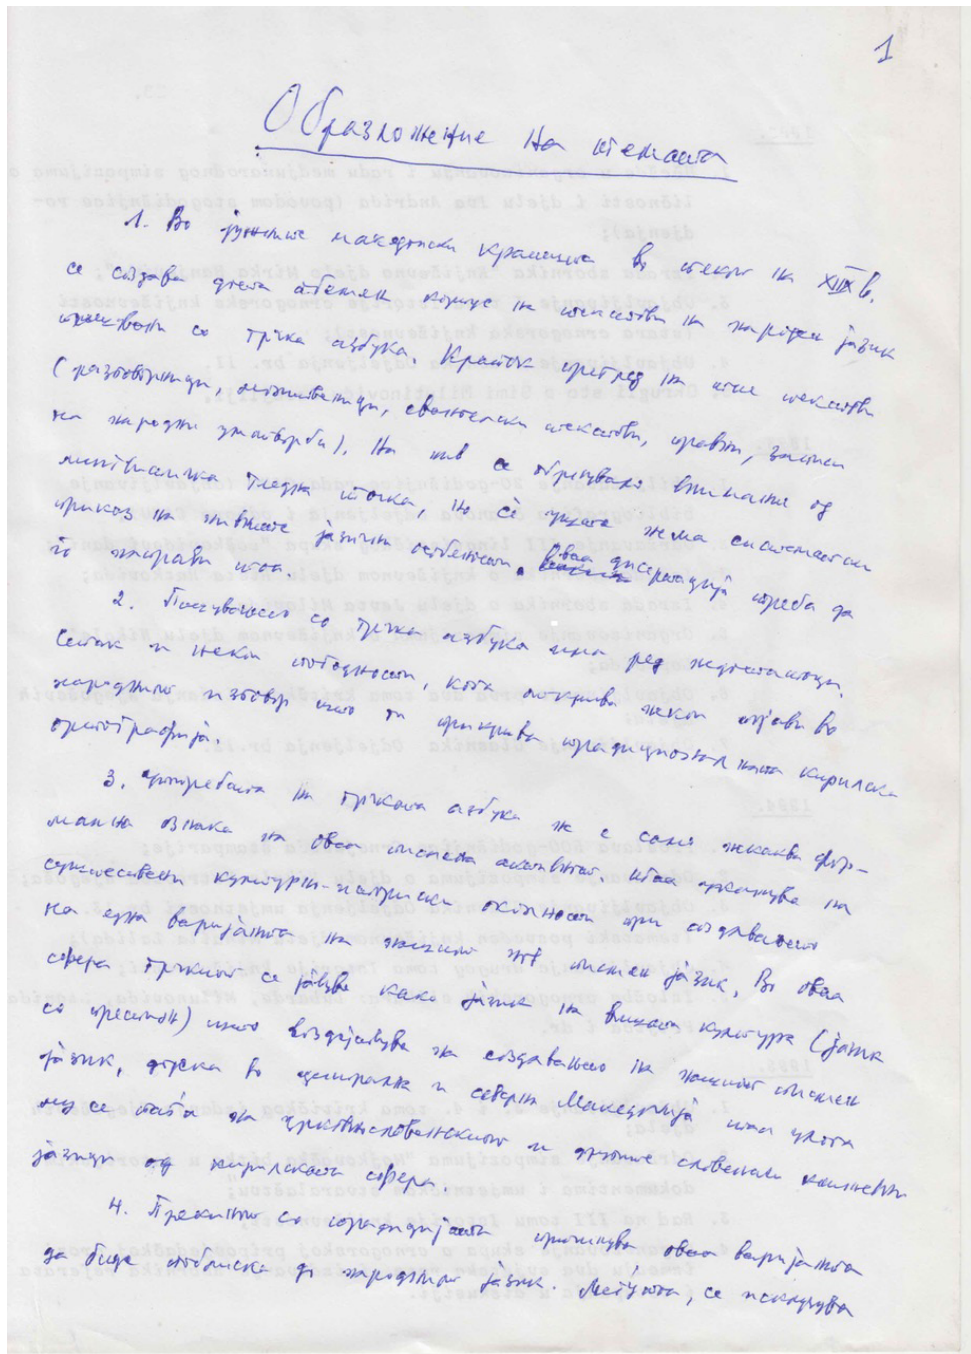 1
Образложение на темата
1. Во јужните македонски краишта во текот на XIX в.
се создава доста обемен корпус на текстови на народен јазик
пишувани со грчка азбука. Краток преглед на тие текстови
(разговорници, евангелски текстови, записи
на народни умотворби). На нив се обрнувало внимание од
лингвистичка гледна точка, но сè уште нема систематски
приказ на нивните јазични особености. Оваа дисертација треба да
го направи тоа.
2. Пишувањето со грчка азбука има ред недостатоци.
Сепак и некои погодности, кога открива некои појави во
народниот изговор што ги прикрива традиционалната кирилска
ортографија.
3. Употребата на грчката азбука не е само некаква фор-
мална ознака на оваа писмена активност. Таа укажува на
суштествени културно-историски околности при создавањето
на една варијанта на нашиот писмен јазик. Во оваа
сфера грчкиот се јавува како јазик на високата култура (јазик
со престиж) што воздејствува на создавањето на нашиот писмен
јазик, додека во централна и северна Македонија таа улога
му се паѓа на црковнословенскиот и другите словенски книжевни
јазици од кирилската сфера.
4. Прекинот со традицијата оваа варијанта
да биде поблиска до народниот јазик. Меѓутоа, се исклучува